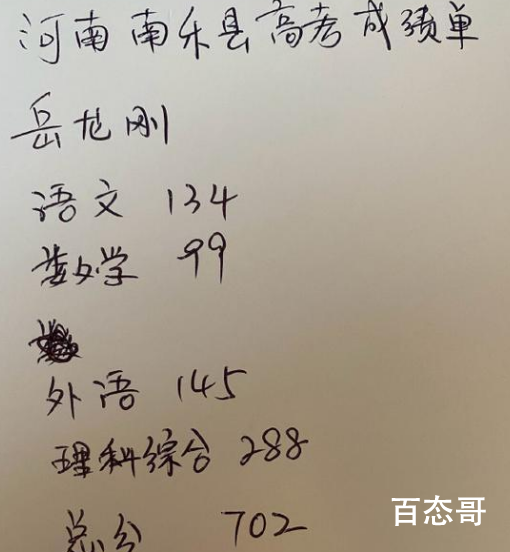 河南南乐县高考成绩单
岳龙刚
语文 134
数学 99
外语 145
理科综合 288
总分 702
百态哥